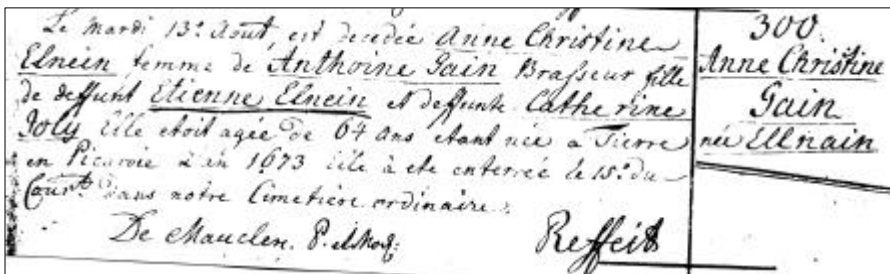 Le Mardi 13e. Aout, est decedée Anne Christine
Elnein femme de Anthoine Gain Brasseur fille
de deffunt Etienne Elnein et deffunte Catherine
Joly Elle etoit agée de 64 ans etant née a Tierre
en Picardie l'an 1673 Elle à eté enterrée le 15e. du
Court. dans notre Cimetiére ordinaire.
De Mauclerc. P.
Reffeit
300.
Anne Christine
Gain
née Ellnain